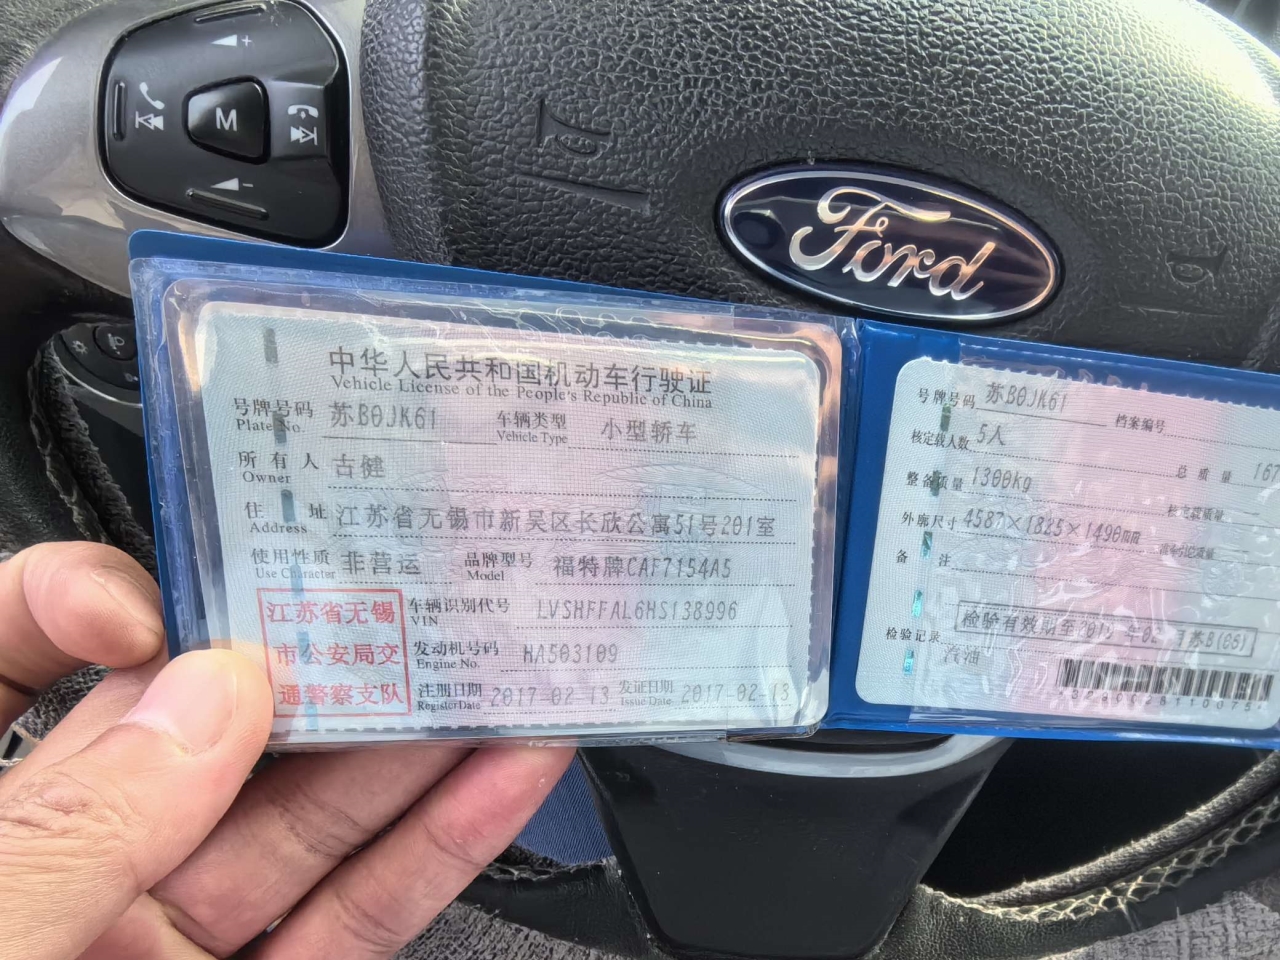 M
Ford
中华人民共和国机动车行驶证
Vehicle License of the People's Republic of China
号牌号码 苏B0JK61 车辆类型 小型轿车
Plate No. Vehicle Type
所有人 古健
Owner
住址 江苏省无锡市新吴区长欣公寓51号201室
Address
使用性质 非营运 品牌型号 福特牌CAF7154A5
Use Character Model
江苏省无锡
市公安局交
通警察支队
车辆识别代号 LVSHFFAL6HS138996
VIN
发动机号码 HA503109
Engine No.
注册日期 2017-02-13 发证日期 2017-02-13
Register Date Issue Date
号牌号码 苏B0JK61 档案编号
核定载人数 5人 总质量 167
整备质量 1300kg 核定载质量
外廓尺寸 4587×1825×1490mm
备注
检验有效期至2019年02月苏B(G6)
检验记录
汽油